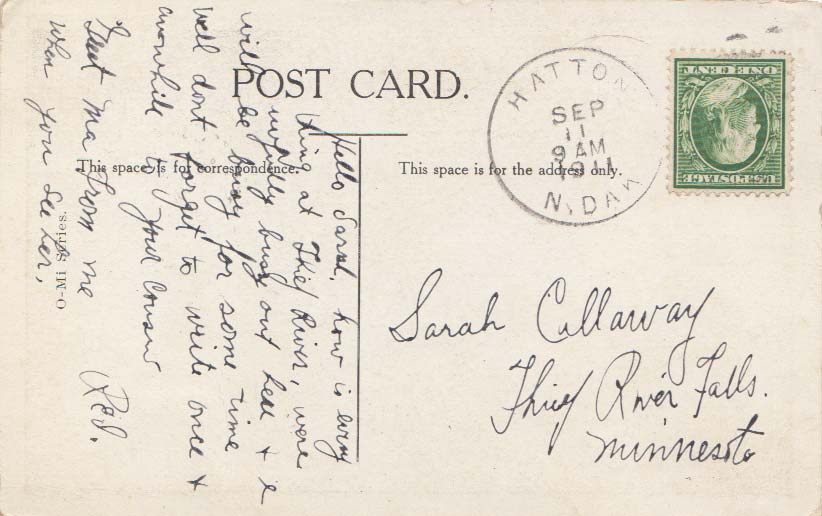 POST CARD.
This space is for correspondence.
This space is for the address only.
O-Mi Series.
HATTON
SEP
11
9 AM
1911
N. DAK
ONE CENT
U.S. POSTAGE
Hello Sarah, how is every
thing at Thief River, were
awfully busy out here + 
will be busy for some time
well dont forget to write once +
awhile to your Cousin
Greet Ma from me
when you see her,
Sarah Callaway
Thief River Falls.
Minnesota